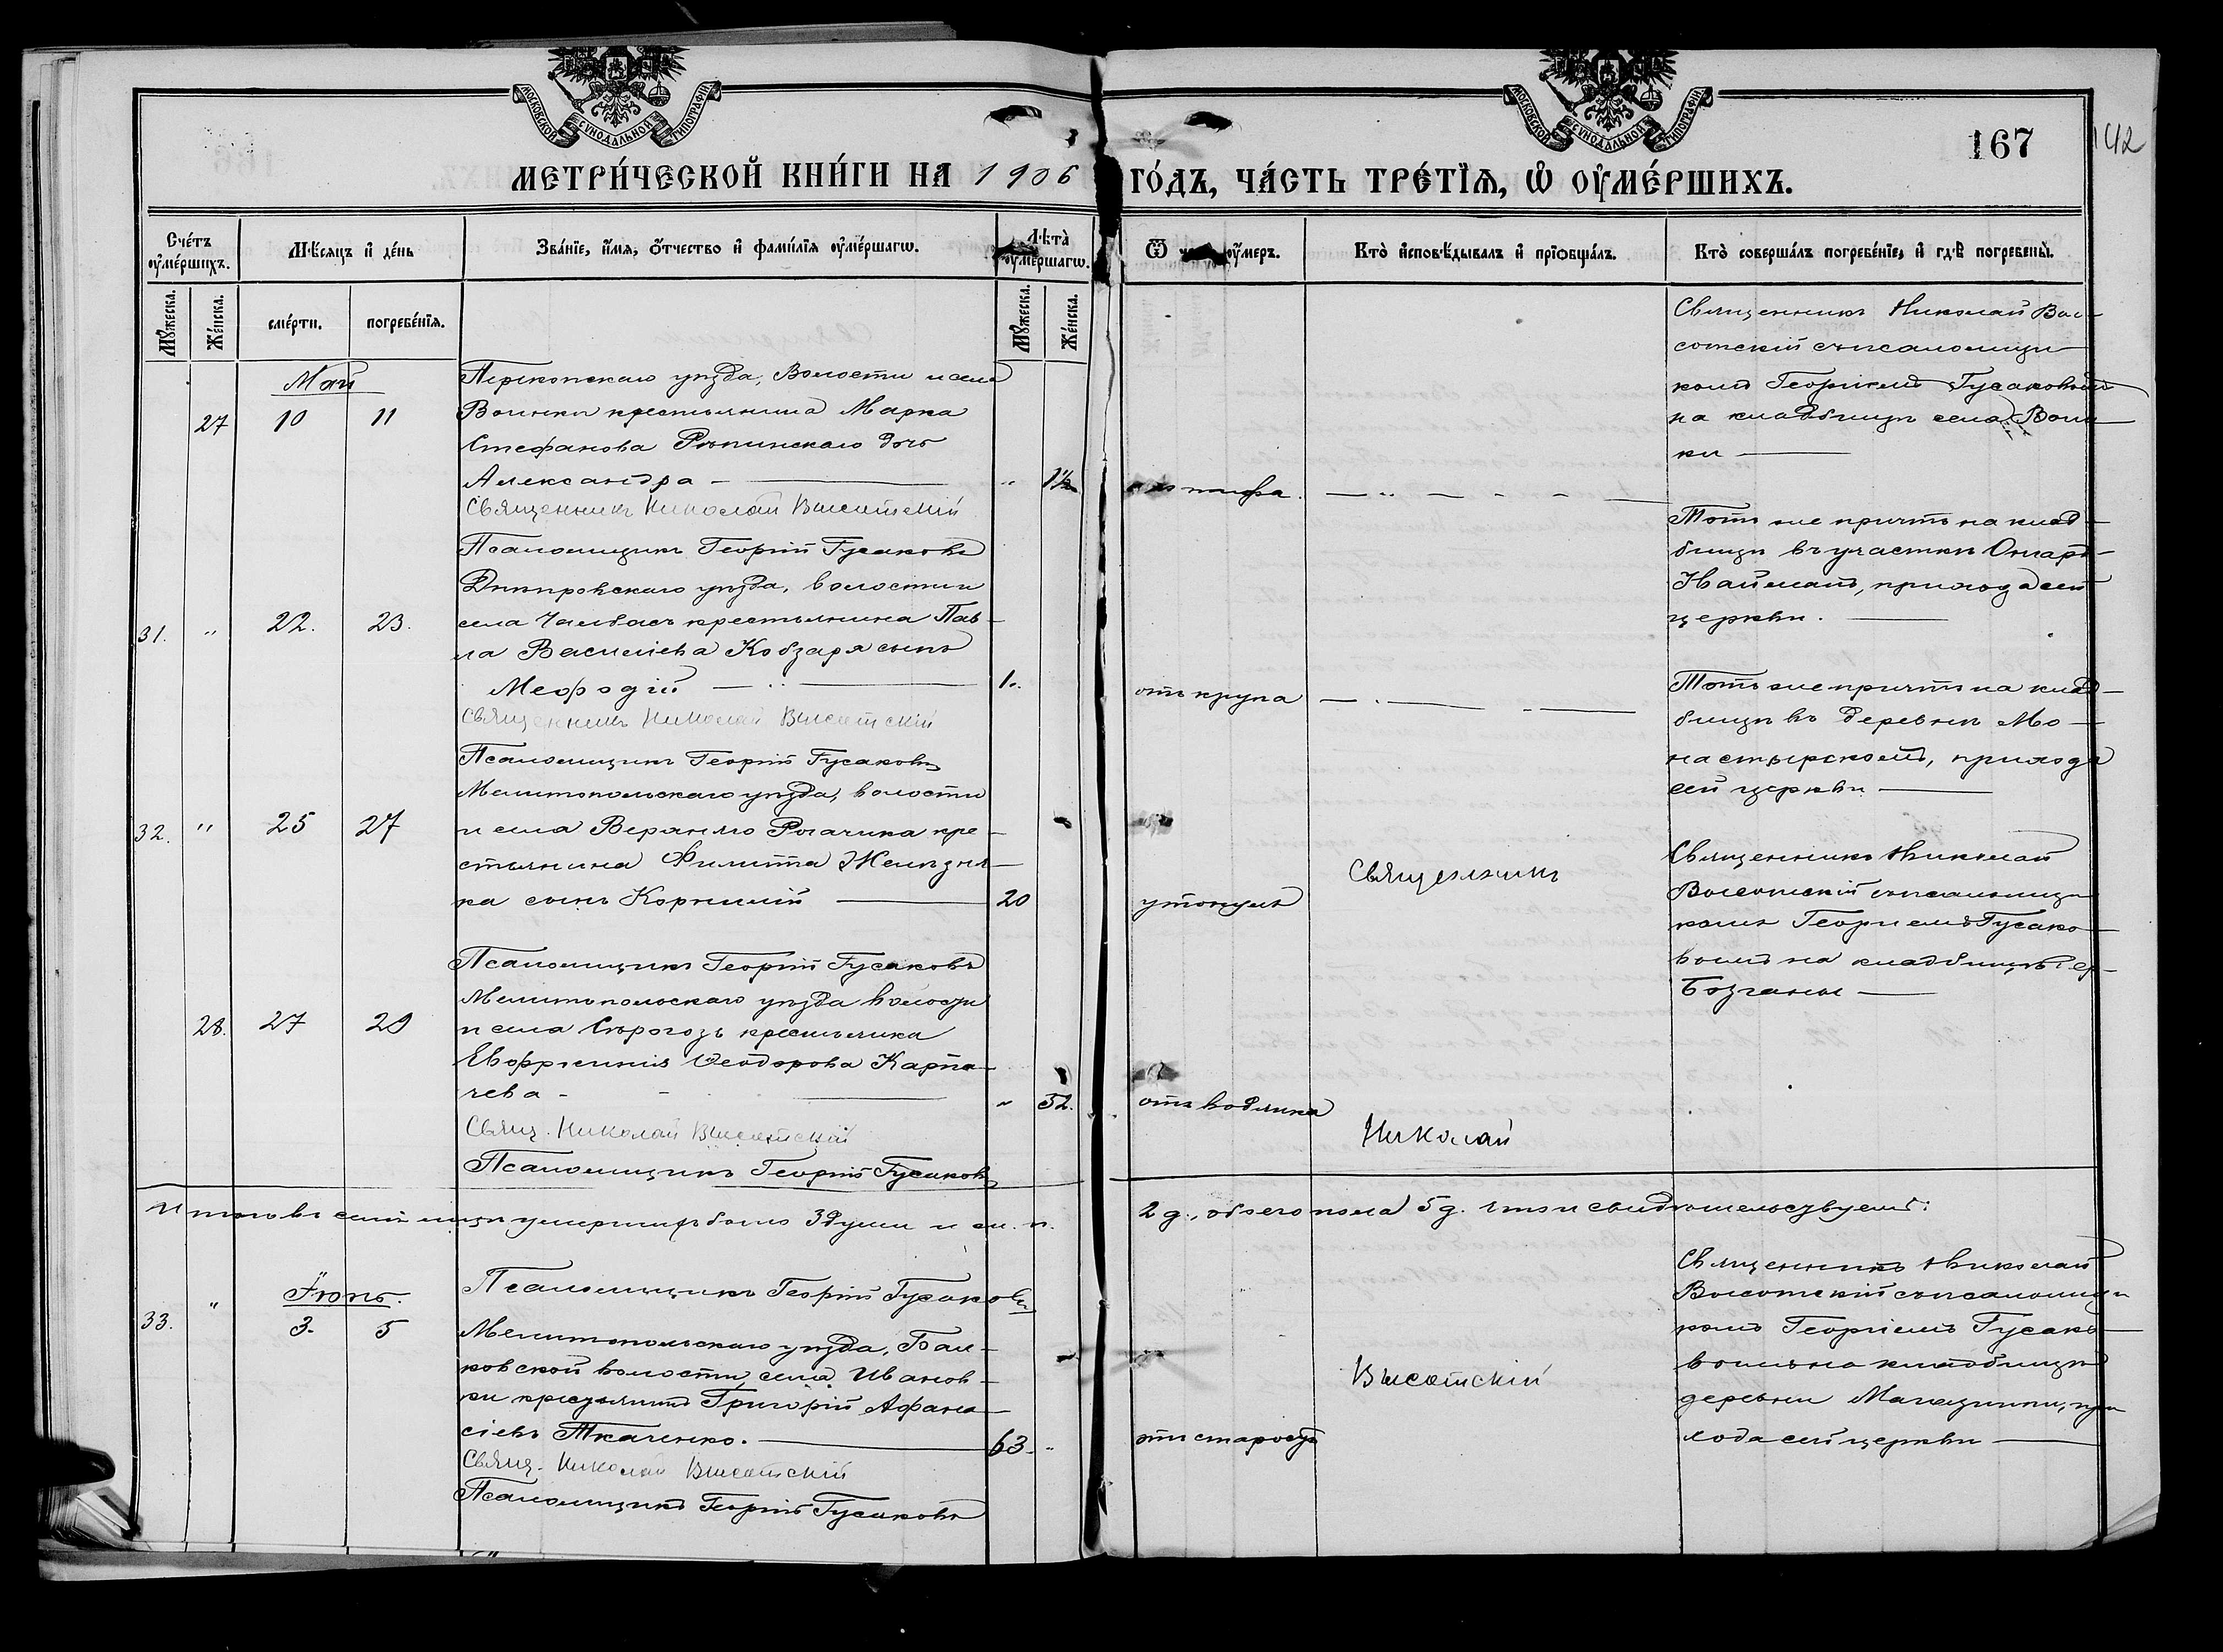 МОСКОВСКОЙ СѴНОДАЛЬНОЙ ТИПОГРАФІИ
МОСКОВСКОЙ СѴНОДАЛЬНОЙ ТИПОГРАФІИ
167
142
МЕТРИ́ЧЕСКОЙ КНИ́ГИ НА 1906
ГО́ДЪ, ЧА́СТЬ ТРЕ́ТІѦ, Ѡ҆ ОУ҆МЕ́РШИХЪ.
Сче́тъ оу҆ме́ршихъ.
Мѣ́сѧцъ и҆ де́нь
Зва́нїе, и҆́мѧ, о҆́тчество и҆ фами́лїѧ оу҆ме́ршагѡ.
Лѣта̀ оу҆ме́ршагѡ.
Ѿ оу҆́меръ.
Кто̀ и҆сповѣ́дывалъ и҆ прїѡбща́лъ.
Кто̀ соверша́лъ погребе́нїе, и҆ гдѣ̀ погребены̀.
Мꙋ́жеска.
Же́нска.
сме́рти.
погребе́нїѧ.
Мꙋ́жеска.
Же́нска.
Май
27 10 11
Перекопскаго уѣзда, Волости и села
Воинки крестьянина Марка
Стефанова Рѣпинскаго дочь
Александра — " 1½
Священникъ Николай Высотскій
Псаломщикъ Георгій Гусаковъ
тифа.
Священникъ Николай Выс-
сотскій съ псаломщи-
комъ Георгіемъ Гусаковымъ
на кладбищѣ села Воин-
ки —
31. " 22. 23.
Днѣпровскаго уѣзда, волости и
села Чалбасъ крестьянина Пав-
ла Васильева Кобзаря сынъ
Мефодій — 1.
Священникъ Николай Высотскій
Псаломщикъ Георгій Гусаковъ
отъ крупа
Тотъ же причтъ на клад-
бищѣ въ участкѣ
Найманъ, прихода сей
церкви. —
32. " 25 27
Мелитопольскаго уѣзда, волости
и села Верхняго Рогачика кре-
стьянина Филиппа Желѣзня-
ка сынъ Корнилій — 20
Псаломщикъ Георгій Гусаковъ
утонулъ
Священникъ
Тотъ же причтъ на клад-
бищѣ въ деревнѣ Мо-
настырской, прихода
сей церкви —
28. 27 29
Мелитопольскаго уѣзда волости
и села Сѣрогозъ крестьянка
Евфросинія Ѳеодорова Карпа-
чева - — " 52.
Свящ. Николай Высотскій
Псаломщикъ Георгій Гусаковъ
отъ водянки
Николай
Священникъ Николай
Высотскій съ псаломщи-
комъ Георгіемъ Гусако-
вымъ на кладбищѣ дер.
—
Итого въ семъ мѣсяцѣ умершихъ было 3 души и ж. п.
2 д., обоего пола 5 д. что и свидѣтельствуемъ:
Псаломщикъ Георгій Гусаковъ
Іюнь.
33. " 3. 5
Мелитопольскаго уѣзда, Бал-
ковской волости, села Иванов-
ки крестьянинъ Григорій Афана-
сіевъ Ткаченко. — 63. "
Свящ. Николай Высотскій
Псаломщикъ Георгій Гусаковъ
отъ старости
Высотскій
Священникъ Николай
Высотскій съ псаломщи-
комъ Георгіемъ Гусако-
вымъ на кладбищѣ
деревни Магазинки, при-
хода сей церкви —